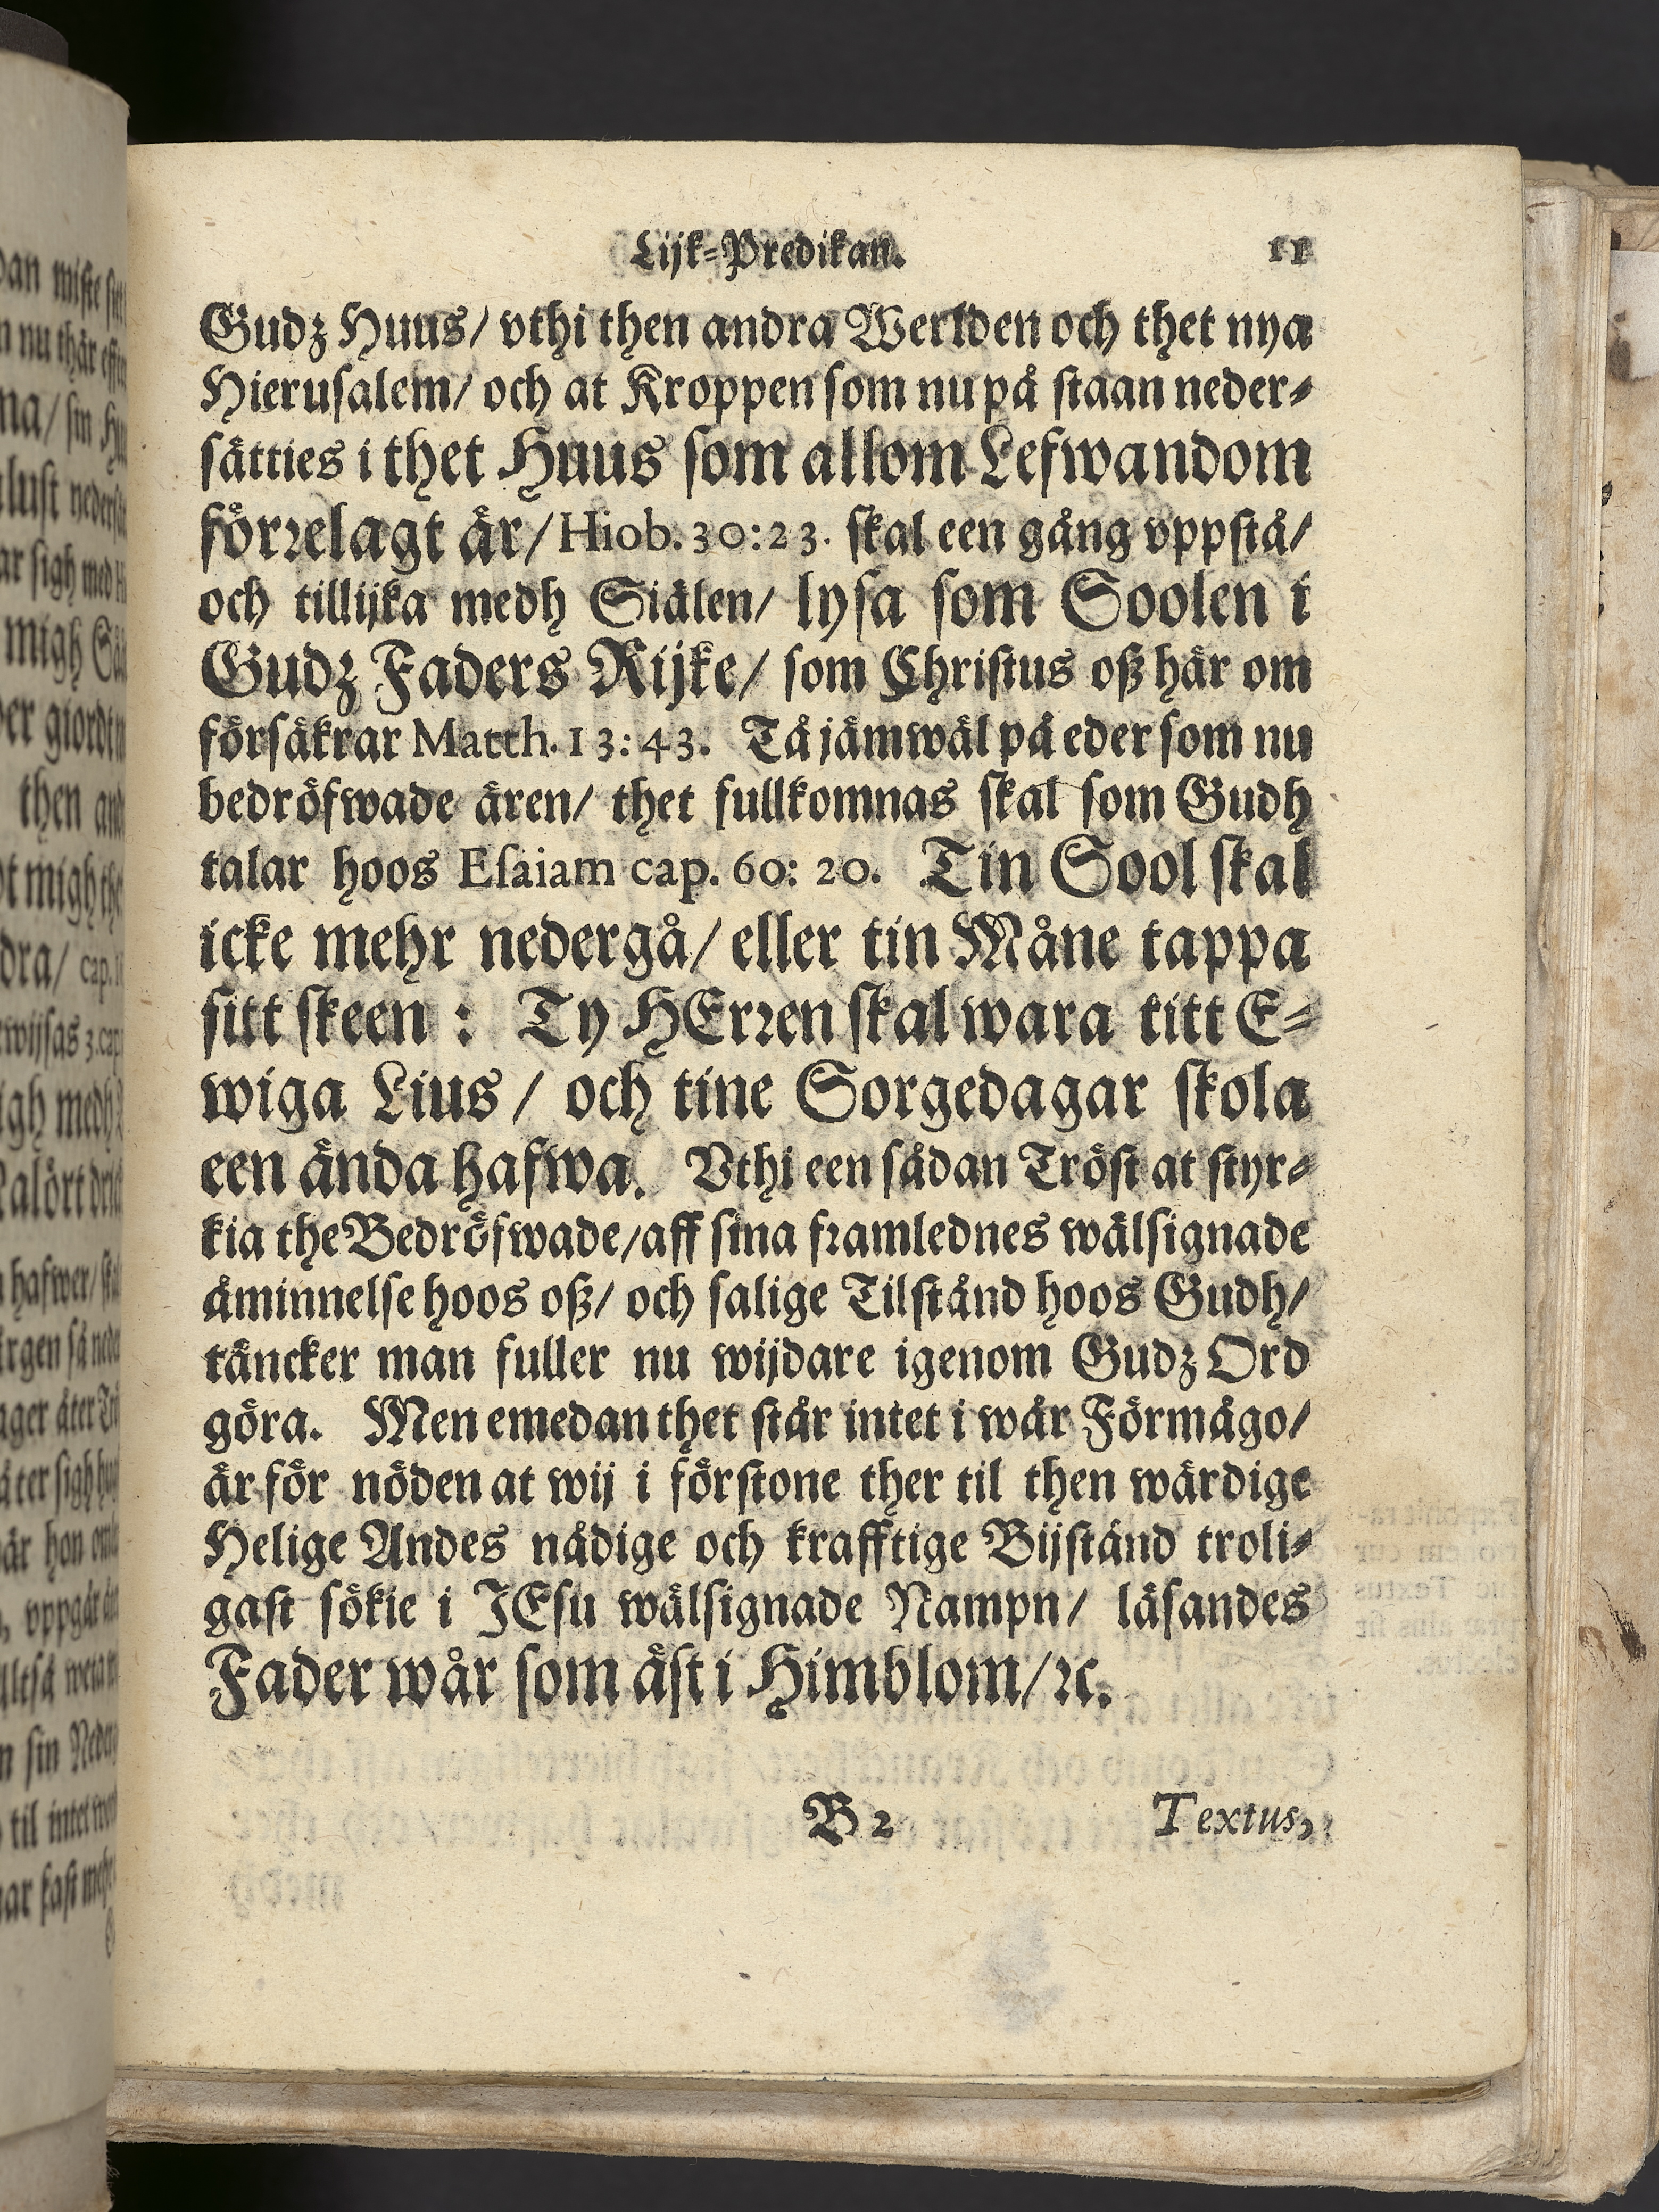 Lijk-Predikan. 11
Gudz Huus/ vthi then andra Werlden och thet nya
Hierusalem/ och at Kroppen som nu på staan neder-
sätties i thet Huus som allom Lefwandom
förrelagt är/ Hiob. 30:23. skal een gång vppstå/
och tillijka medh Siälen/ lysa som Soolen i
Gudz Faders Rijke/ som Christus oß här om
försäkrar Matth. 13: 43. Tå jämwäl på eder som nu
bedröfwade ären/ thet fullkomnas skal som Gudh
talar hoos Esaiam cap. 60: 20. Tin Sool skal
icke mehr nedergå/ eller tin Måne tappa
sitt skeen : Ty HErren skal wara titt E-
wiga Lius / och tine Sorgedagar skola
een ända hafwa. Vthi een sådan Tröst at styr-
kia the Bedröfwade/ aff sina framlednes wälsignade
åminnelse hoos oß/ och salige Tilstånd hoos Gudh/
täncker man fuller nu wijdare igenom Gudz Ord
göra. Men emedan thet står intet i wår Förmågo/
är för nöden at wij i förstone ther til then wärdige
Helige Andes nådige och krafftige Bijstånd troli-
gast sökie i JEsu wälsignade Nampn/ läsandes
Fader wår som äst i Himblom/ ꝛc.
B 2 Textus,